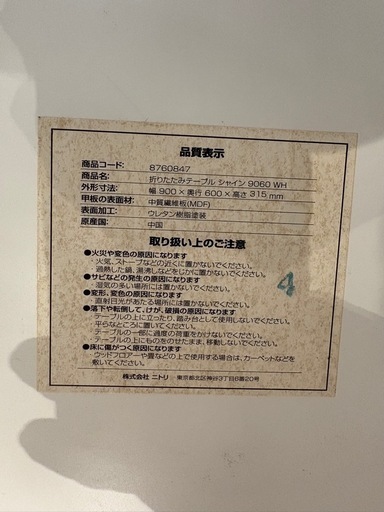 品質表示
商品コード: 8760847
商品名: 折りたたみテーブル シャイン 9060 WH
外形寸法: 幅 900 × 奥行 600 × 高さ 315 mm
甲板の表面材: 中質繊維板(MDF)
表面加工: ウレタン樹脂塗装
原産国: 中国
取り扱い上のご注意
●火災や変色の原因になります
・火気、ストーブなどの近くに置かないでください。
・過熱した鍋、湯沸しなどをじかに置かないでください。
●サビなどの発生の原因になります
・湿気の多い場所には置かないでください。
●変形、変色の原因になります
・直射日光があたる場所には置かないでください。
●落下や転倒して、けが、破損の原因になります
・テーブルの上に立ったり、踏み台として使用しないでください。
・平らなところに置いてください。
・テーブルの一部に過度の荷重をかけないでください。
・テーブルの上にものをのせたまま、移動しないでください。
●床に傷がつく原因になります
・ウッドフロアーや畳などの上で使用する場合は、カーペットなどを
敷いてください。
株式会社 ニトリ 東京都北区神谷3丁目6番20号
4